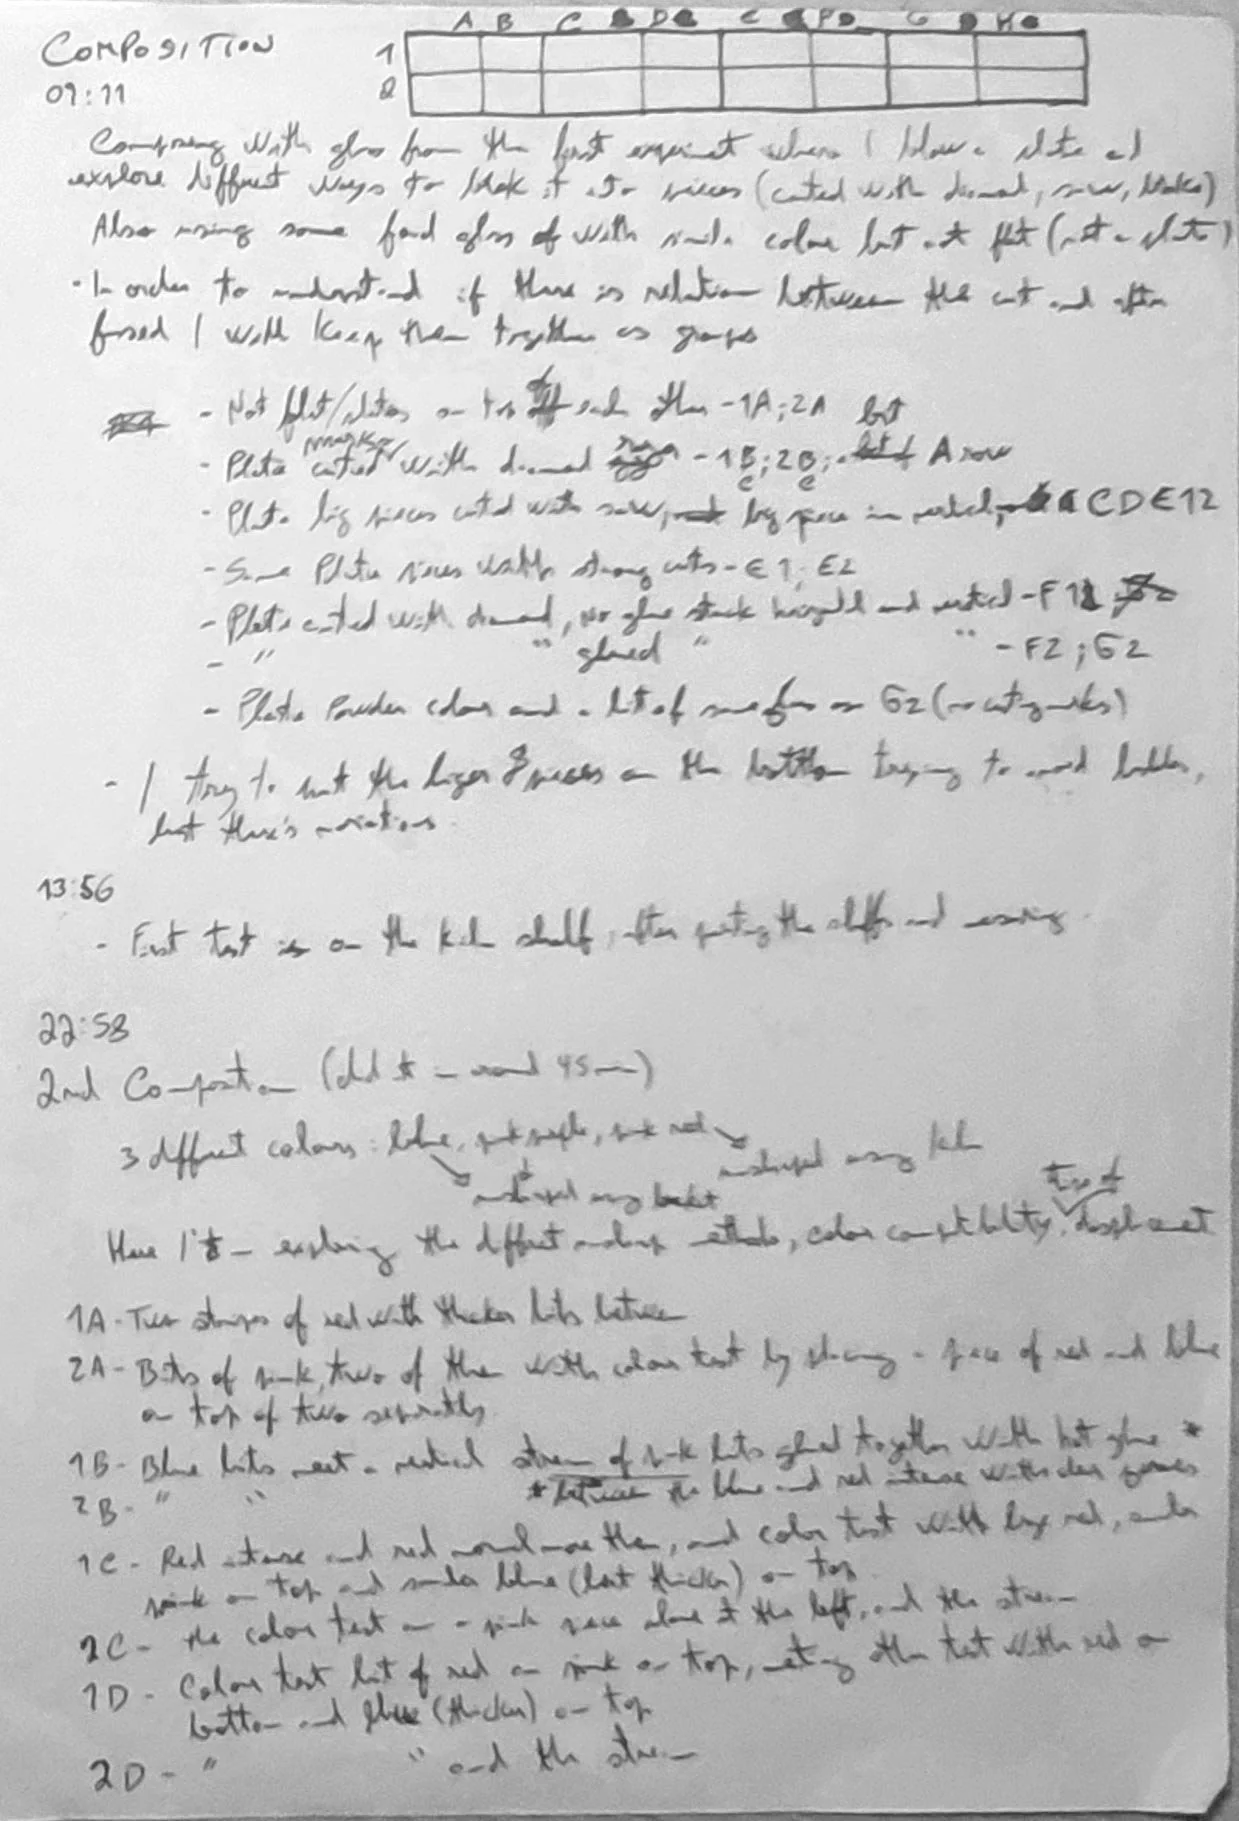 A B C D E F G H
COMPOSITION 1
09:11 2
Composing with glass from the first experiment where I blow a plate and
explore different ways to break it into pieces (cuted with diamond, saw, broke)
Also using some found glass of with similar colour but not flat (not a plate)
- In order to understand if there is relation between the cut and after
fused I will keep them together as groups
- Not flat/plates on top of each other - 1A; 2A bit
- Plate cuted with diamond - 1B; 2B; A row
marks
C C
- Plate big pieces cuted with saw, big piece in vertical, CDE12
- Some Plate pieces with strong cuts - E1; E2
- Plate cuted with diamond, no glue stack horizontal and vertical - F1
- " " glued " " - F2; G2
- Plate Powder colour and a bit of on G2 (no cuting marks)
- I try to put the biger pieces on the bottom trying to avoid bubbles,
but there's variations.
13:56
- First test is on the kiln shelf, after the and
22:58
2nd Composition (did it in around 45min)
3 different colours: blue, pink purple, pink red
using kiln
using bucket
type of
Here I'm exploring the different methods, color compatibility,
1A - Two stripes of red with thicker bits between
2A - Bits of pink, two of them with colour test by placing a piece of red and blue
on top of two separately.
1B - Blue bits meet a vertical stream of pink bits glued together with hot glue *
2B - " " * between the blue and red intense with clear
1C - Red intense and red normal more then, and color test with big red, smaller
pink on top and smaller blue (but thicker) on top.
2C - The color test on a pink piece alone at the left, and the stream
1D - Colour test bit of red on pink on top, meeting other test with red on
bottom and blue (thicker) on top
2D - " " and the stream